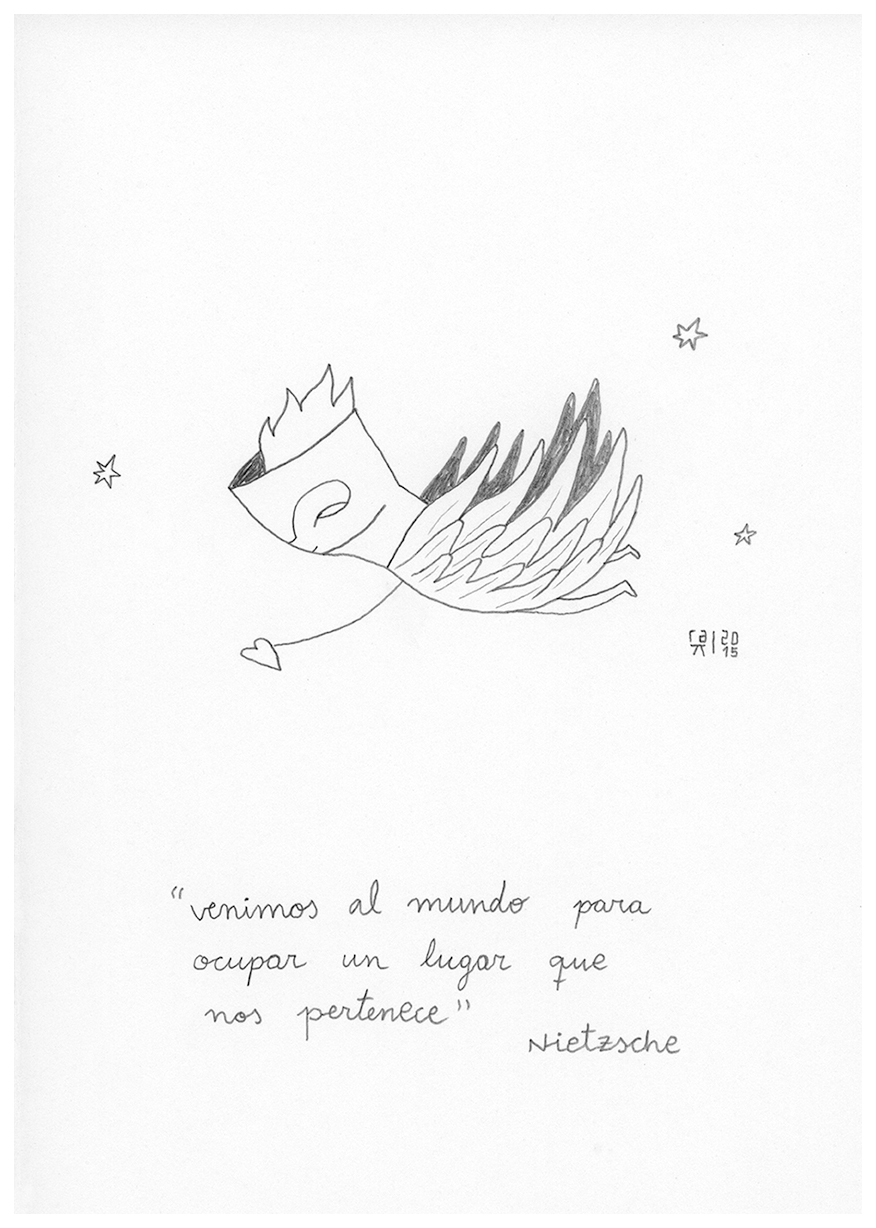 20
15
“venimos al mundo para
ocupar un lugar que
nos pertenece”
Nietzsche